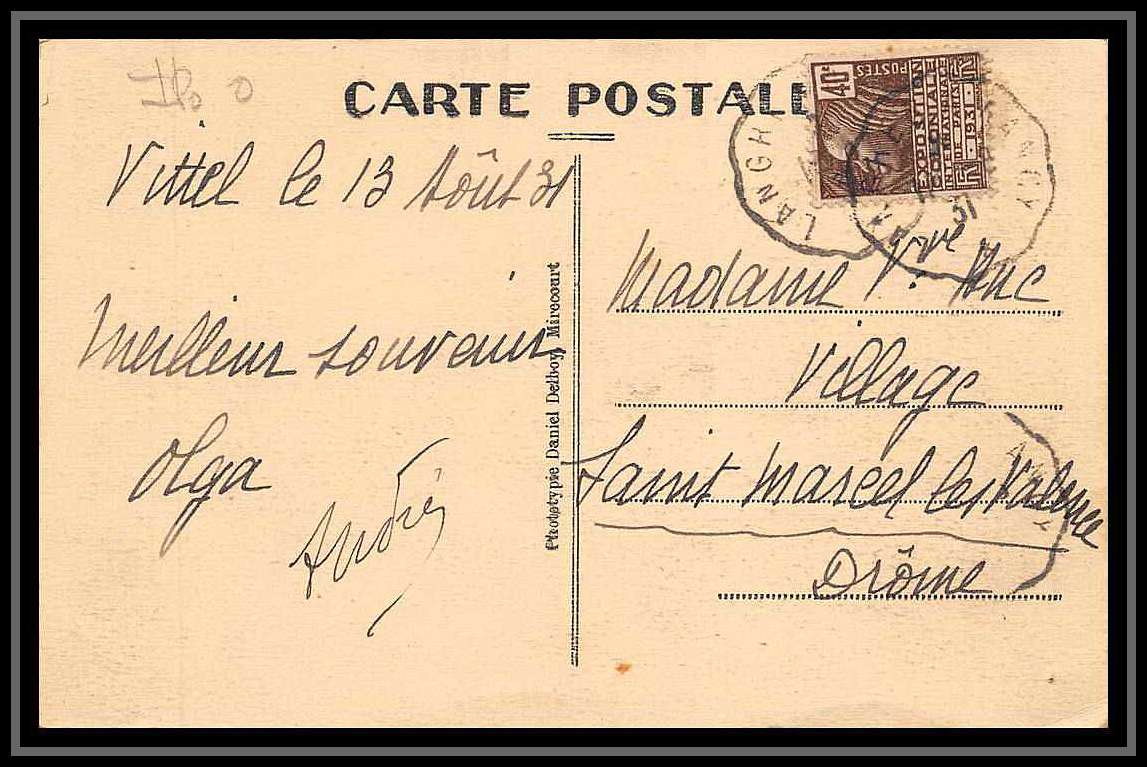 CARTE POSTALE
40c
POSTES
EXPOSITION
COLONIALE
INTERNATIONALE
PARIS
1931
LANGR
NANCY
31
Vittel le 13 Août 31
Meilleur souvenir
Olga
André
Phototypie Daniel Delboy, Mirecourt
Madame Vve Huc
Village
Saint Marcel les Valence
Drôme